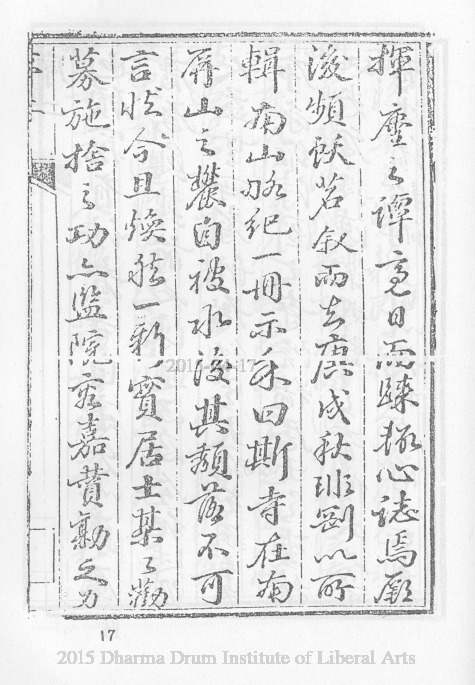 揮麈之譚竟日而輒心誌焉厥
後頻茗叙而去庚戌秋以所
輯南山略紀一冊示余曰斯寺在南
屏山之麓自被水後其頹落不可
言狀今且煥然一新實居士某々勸
募施捨之功亦監院嘉贊勷之力
17
2015 Dharma Drum Institute of Liberal Arts